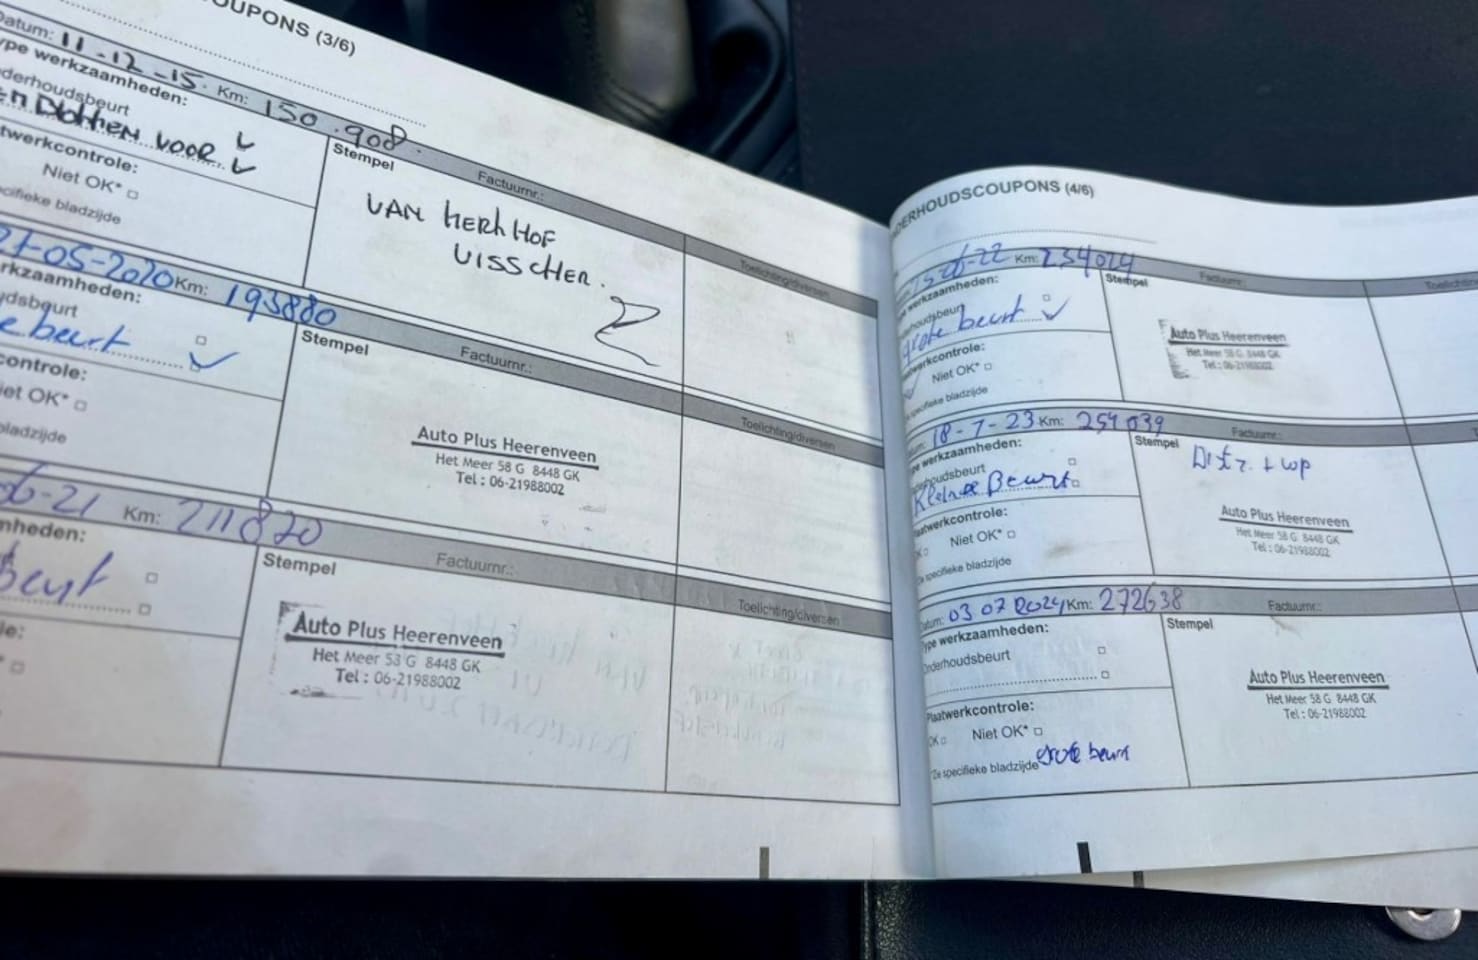 COUPONS (3/6)
Datum: 11-12-15. Km: 150.908.
Type werkzaamheden:
Onderhoudsbeurt
Blokken voor
Niet OK*
specifieke bladzijde
Stempel
Factuurnr.:
VAN KERKHOF
VISSCHER.
Toelichting/diversen
-05-2020 Km: 193880
werkzaamheden:
beurt
controle:
Niet OK*
bladzijde
Stempel
Factuurnr.:
Auto Plus Heerenveen
Het Meer 58 G 8448 GK
Tel : 06-21988002
Toelichting/diversen
06-21 Km: 211820
Beurt
Stempel
Factuurnr.:
Auto Plus Heerenveen
Het Meer 58 G 8448 GK
Tel : 06-21988002
Toelichting/diversen
ONDERHOUDSCOUPONS (4/6)
-22 Km: 234024
werkzaamheden:
Onderhoudsbeurt
grote beurt
Plaatwerkcontrole:
Niet OK*
Zie specifieke bladzijde
Stempel
Factuurnr.:
Auto Plus Heerenveen
Het Meer 58 G 8448 GK
Tel : 06-21988002
Datum: 18-7-23 Km: 254039
Type werkzaamheden:
Onderhoudsbeurt
Kleine Beurt
Plaatwerkcontrole:
Niet OK*
Zie specifieke bladzijde
Stempel
Factuurnr.:
Distr. + wp
Auto Plus Heerenveen
Het Meer 58 G 8448 GK
Tel : 06-21988002
Datum: 03 07 2024 Km: 272638
Type werkzaamheden:
Onderhoudsbeurt
Plaatwerkcontrole:
OK Niet OK*
Zie specifieke bladzijde grote beurt
Stempel
Factuurnr.:
Auto Plus Heerenveen
Het Meer 58 G 8448 GK
Tel : 06-21988002